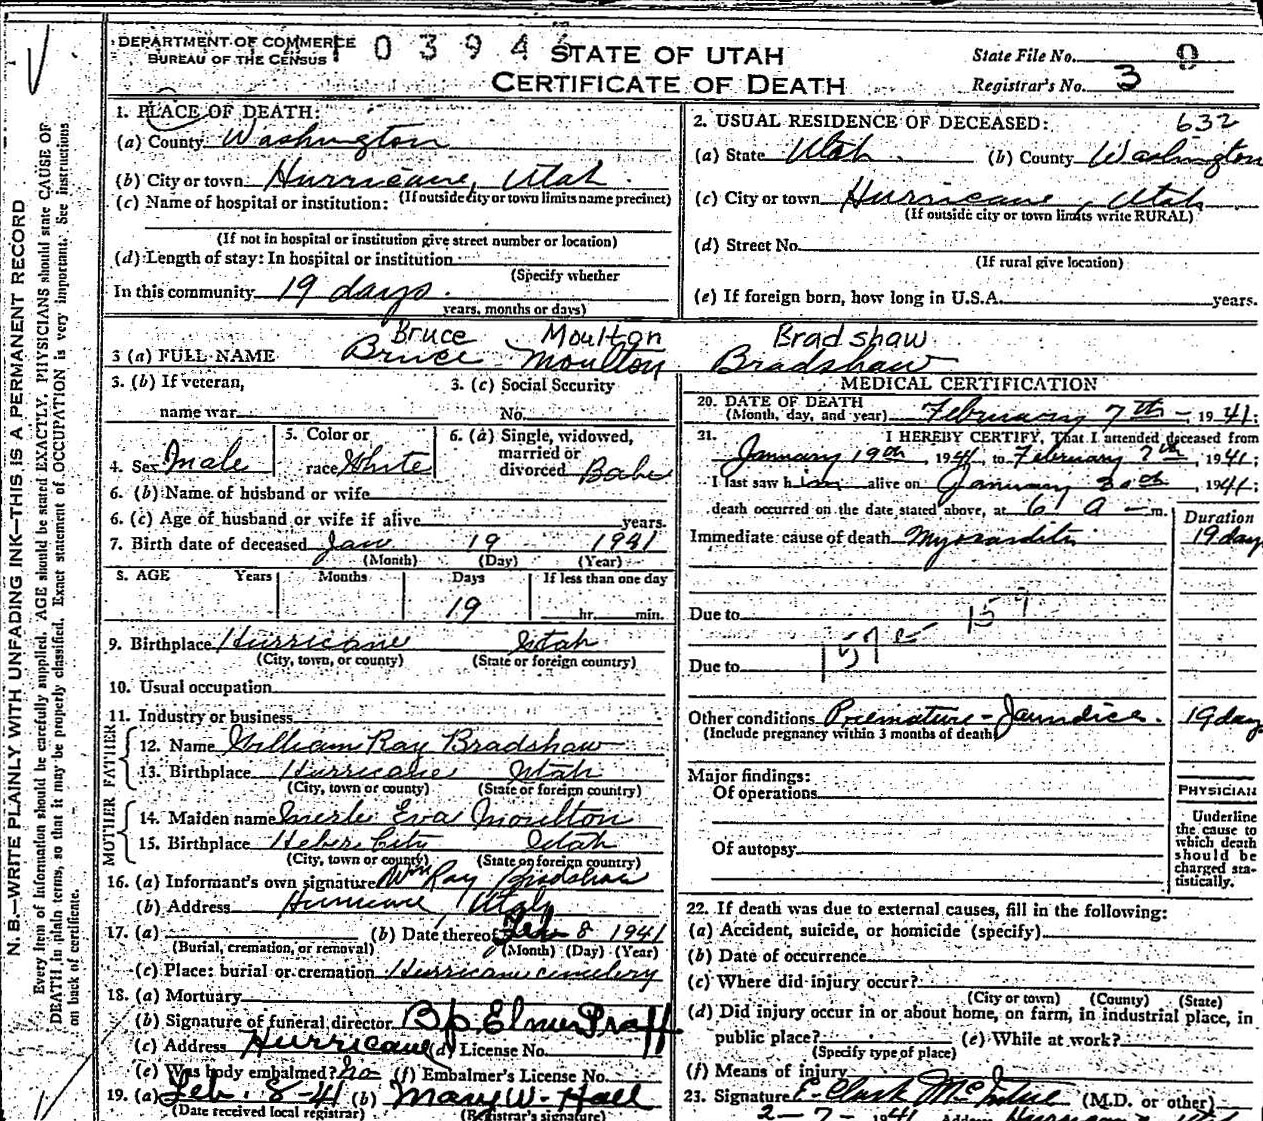 N. B.—WRITE PLAINLY WITH UNFADING INK—THIS IS A PERMANENT RECORD
Every item of information should be carefully supplied. AGE should be stated EXACTLY. PHYSICIANS should state CAUSE OF
DEATH in plain terms, so that it may be properly classified. Exact statement of OCCUPATION is very important. See instructions
on back of certificate.
DEPARTMENT OF COMMERCE
BUREAU OF THE CENSUS
STATE OF UTAH
CERTIFICATE OF DEATH
State File No. 9
Registrar's No. 3
1. PLACE OF DEATH:
(a) County Washington
(b) City or town Hurricane, Utah
(If outside city or town limits name precinct)
(c) Name of hospital or institution:
(If not in hospital or institution give street number or location)
(d) Length of stay: In hospital or institution
(Specify whether
In this community 19 days.
years, months or days)
2. USUAL RESIDENCE OF DECEASED: 632
(a) State Utah (b) County Washington
(c) City or town Hurricane, Utah
(If outside city or town limits write RURAL)
(d) Street No.
(If rural give location)
(e) If foreign born, how long in U.S.A. years.
Bruce Moulton Bradshaw
3 (a) FULL NAME Bruce Moulton Bradshaw
3. (b) If veteran,
name war
3. (c) Social Security
No.
4. Sex Male
5. Color or
race White
6. (a) Single, widowed,
married or
divorced Babe
6. (b) Name of husband or wife
6. (c) Age of husband or wife if alive years.
7. Birth date of deceased Jan 19 1941
(Month) (Day) (Year)
8. AGE Years Months Days If less than one day
19 hr. min.
9. Birthplace Hurricane Utah
(City, town, or county) (State or foreign country)
10. Usual occupation
11. Industry or business
FATHER
12. Name William Ray Bradshaw
13. Birthplace Hurricane Utah
(City, town or county) (State or foreign country)
MOTHER
14. Maiden name Merle Eva Moulton
15. Birthplace Heber City Utah
(City, town or county) (State or foreign country)
16. (a) Informant's own signature Wm Ray Bradshaw
(b) Address Hurricane, Utah
17. (a) (b) Date thereof Feb 8 1941
(Burial, cremation, or removal) (Month) (Day) (Year)
(c) Place: burial or cremation Hurricane cimetery
18. (a) Mortuary
(b) Signature of funeral director Bp. Elmer Graff
(c) Address Hurricane (d) License No.
(e) Was body embalmed? no (f) Embalmer's License No.
19. (a) Feb. 8-41 (b) Mary W. Hall
(Date received local registrar) (Registrar's signature)
MEDICAL CERTIFICATION
20. DATE OF DEATH
(Month, day, and year) February 7th - 1941;
21. I HEREBY CERTIFY, That I attended deceased from
January 19th, 1941, to February 7th, 1941;
I last saw him alive on January 30th, 1941;
death occurred on the date stated above, at 6 A-m.
Duration
Immediate cause of death Myocarditis 19 days
Due to 159
157e
Due to
Other conditions Premature - Jaundice. 19 days
(Include pregnancy within 3 months of death)
Major findings:
Of operations
Of autopsy
PHYSICIAN
Underline
the cause to
which death
should be
charged sta-
tistically.
22. If death was due to external causes, fill in the following:
(a) Accident, suicide, or homicide (specify)
(b) Date of occurrence
(c) Where did injury occur?
(City or town) (County) (State)
(d) Did injury occur in or about home, on farm, in industrial place, in
public place? (e) While at work?
(Specify type of place)
(f) Means of injury
23. Signature E. Clark McIntire (M.D. or other)
2-7-1941 Address